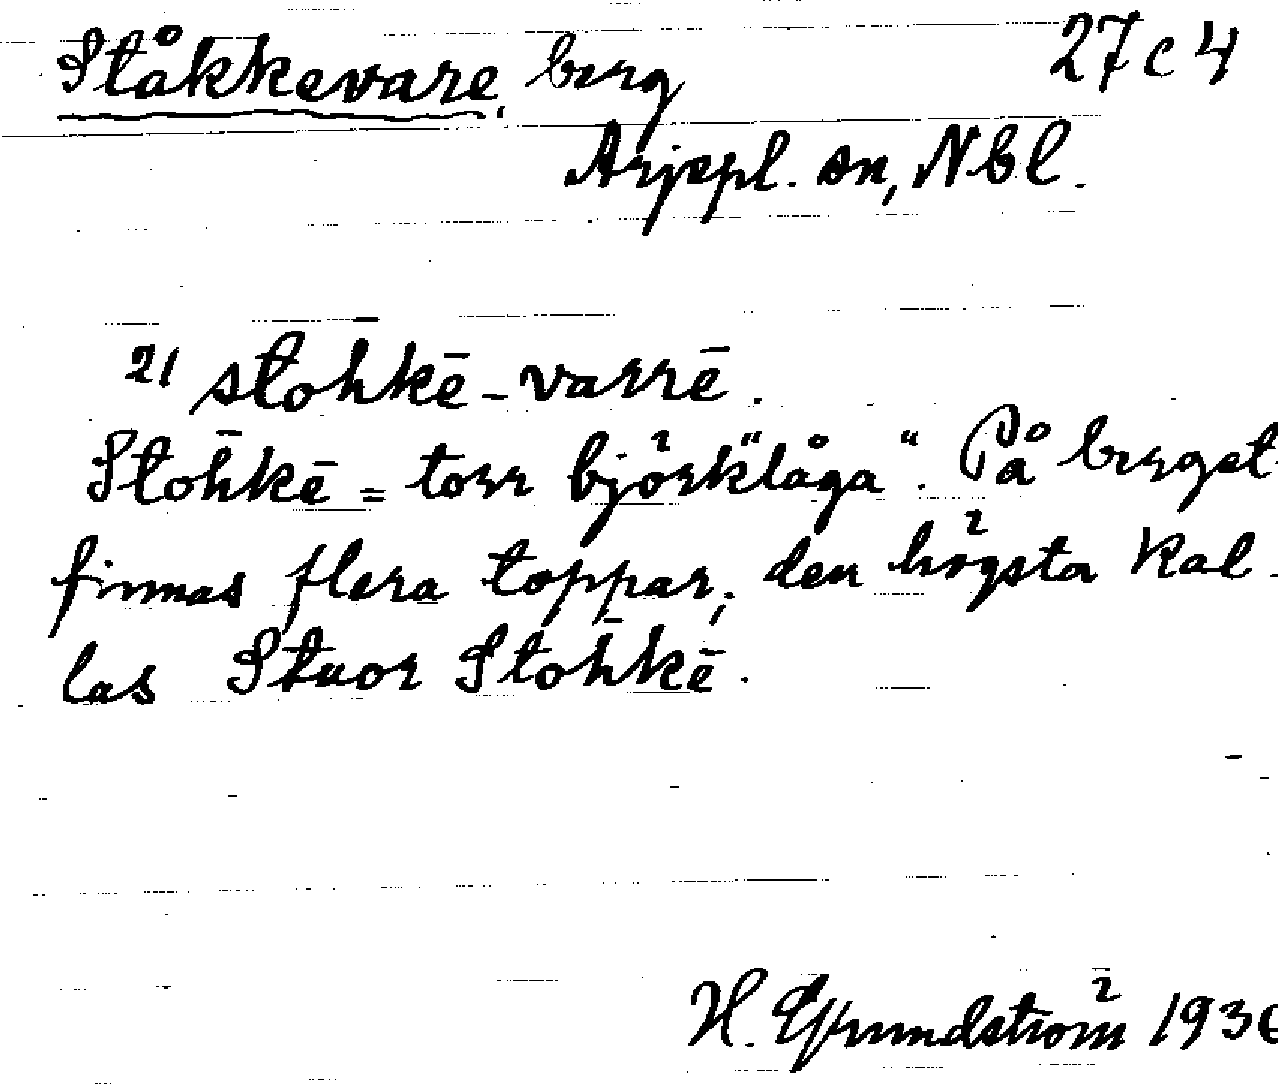 Ståkkevare, berg 27 c 4
Arjepl. sn, Nbl.
21 stōhkē-varrē.
Stōhkē = torr björk"låga". På berget
finnas flera toppar; den högsta kal-
las Stuor Stōhkē.
H. Grundström 1936